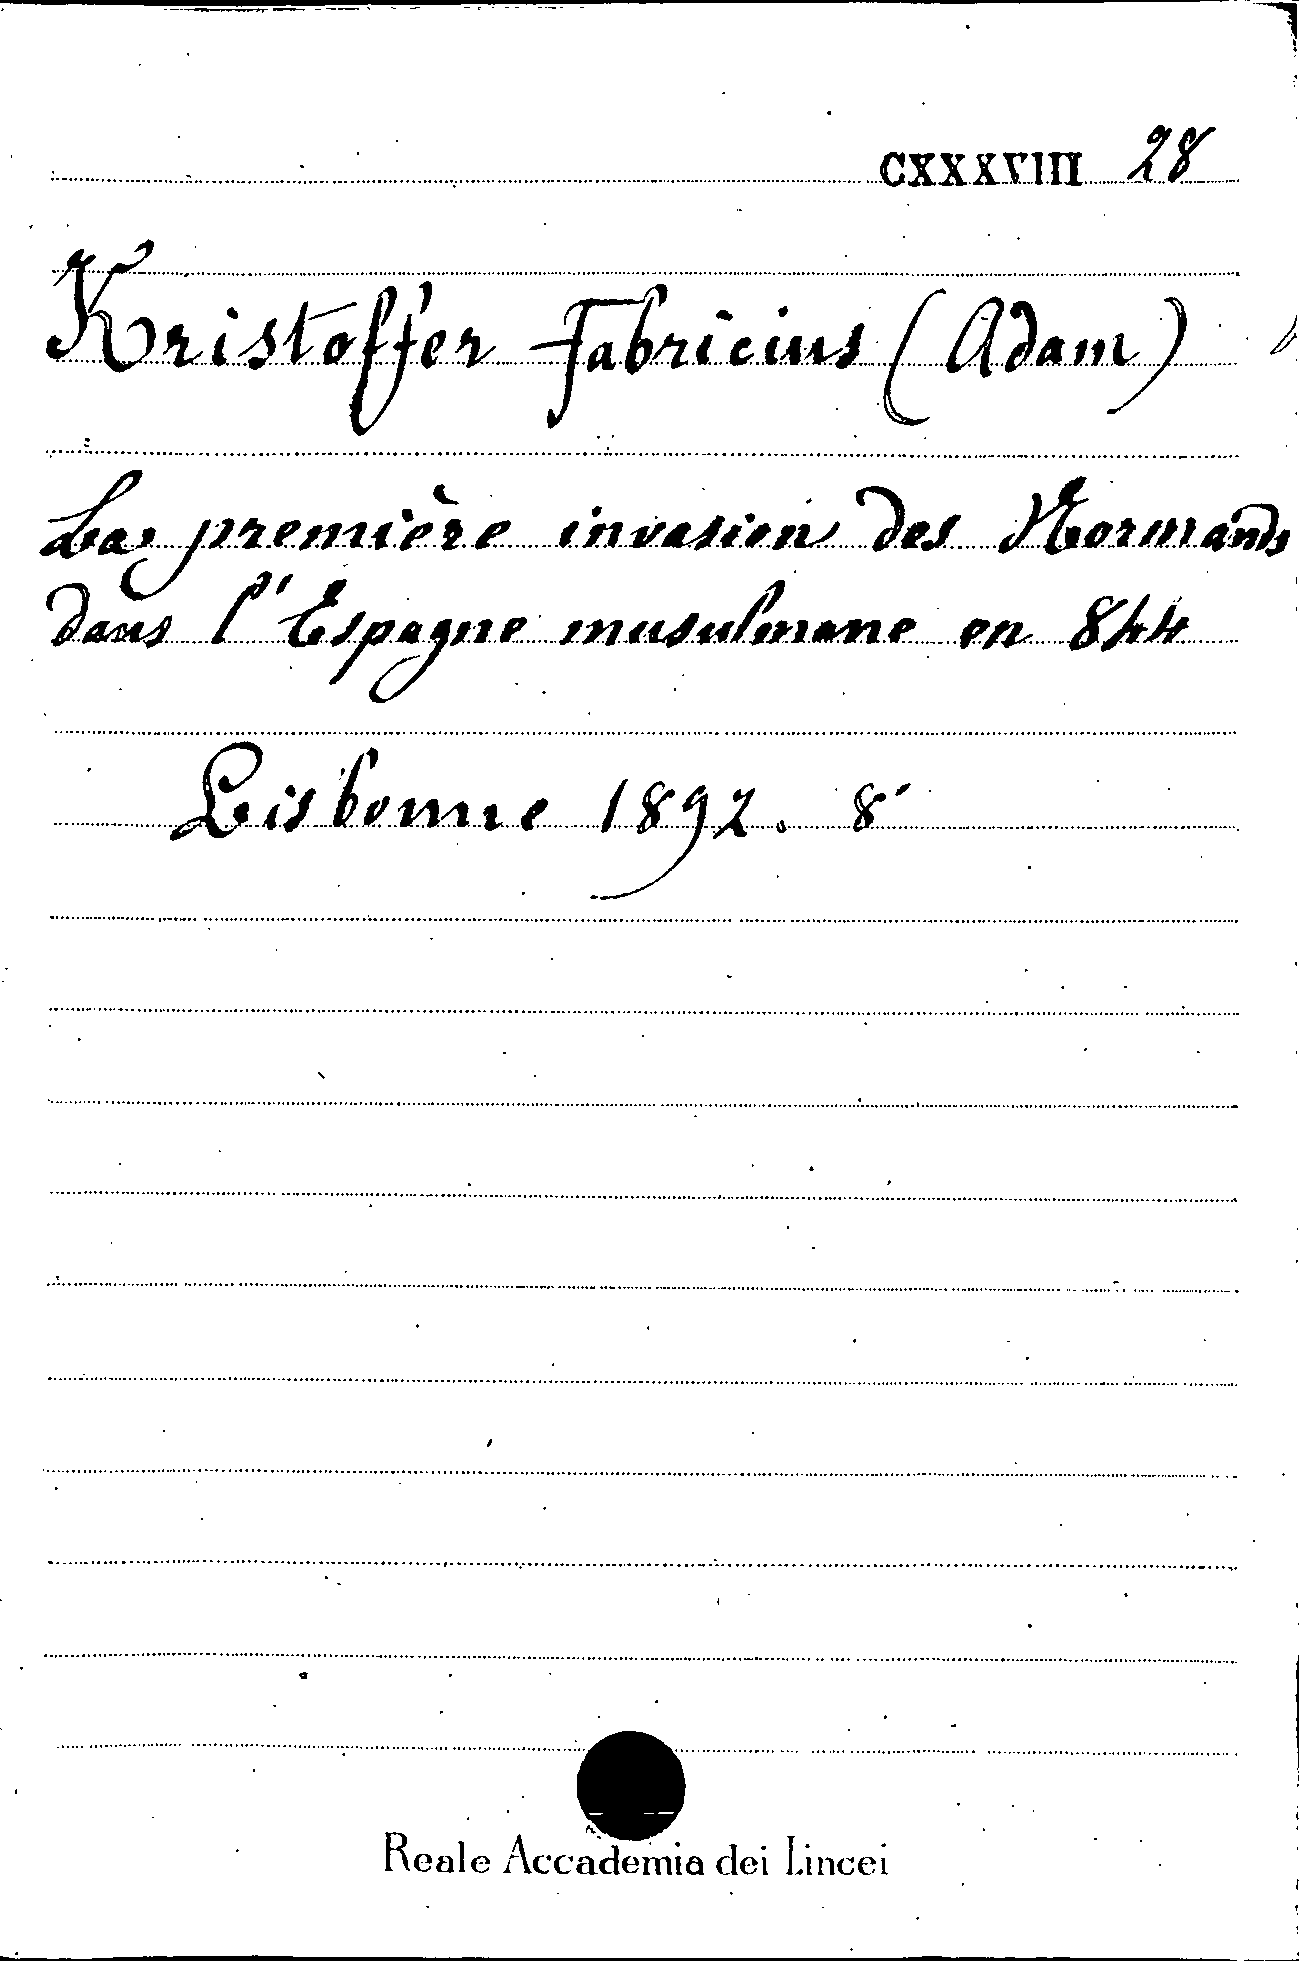 CXXXVIII 28
Kristoffer Fabricius (Adam)
La première invasion des Normands
dans l'Espagne musulmane en 844
Lisbonne 1892. 8°
Reale Accademia dei Lincei